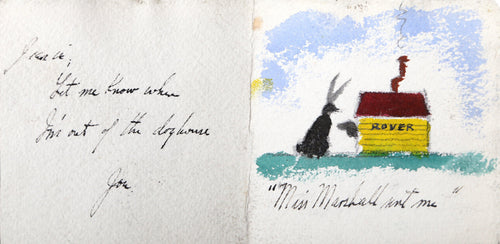 Let me know when
I'm out of the doghouse
ROVER
"Miss Marshall me"